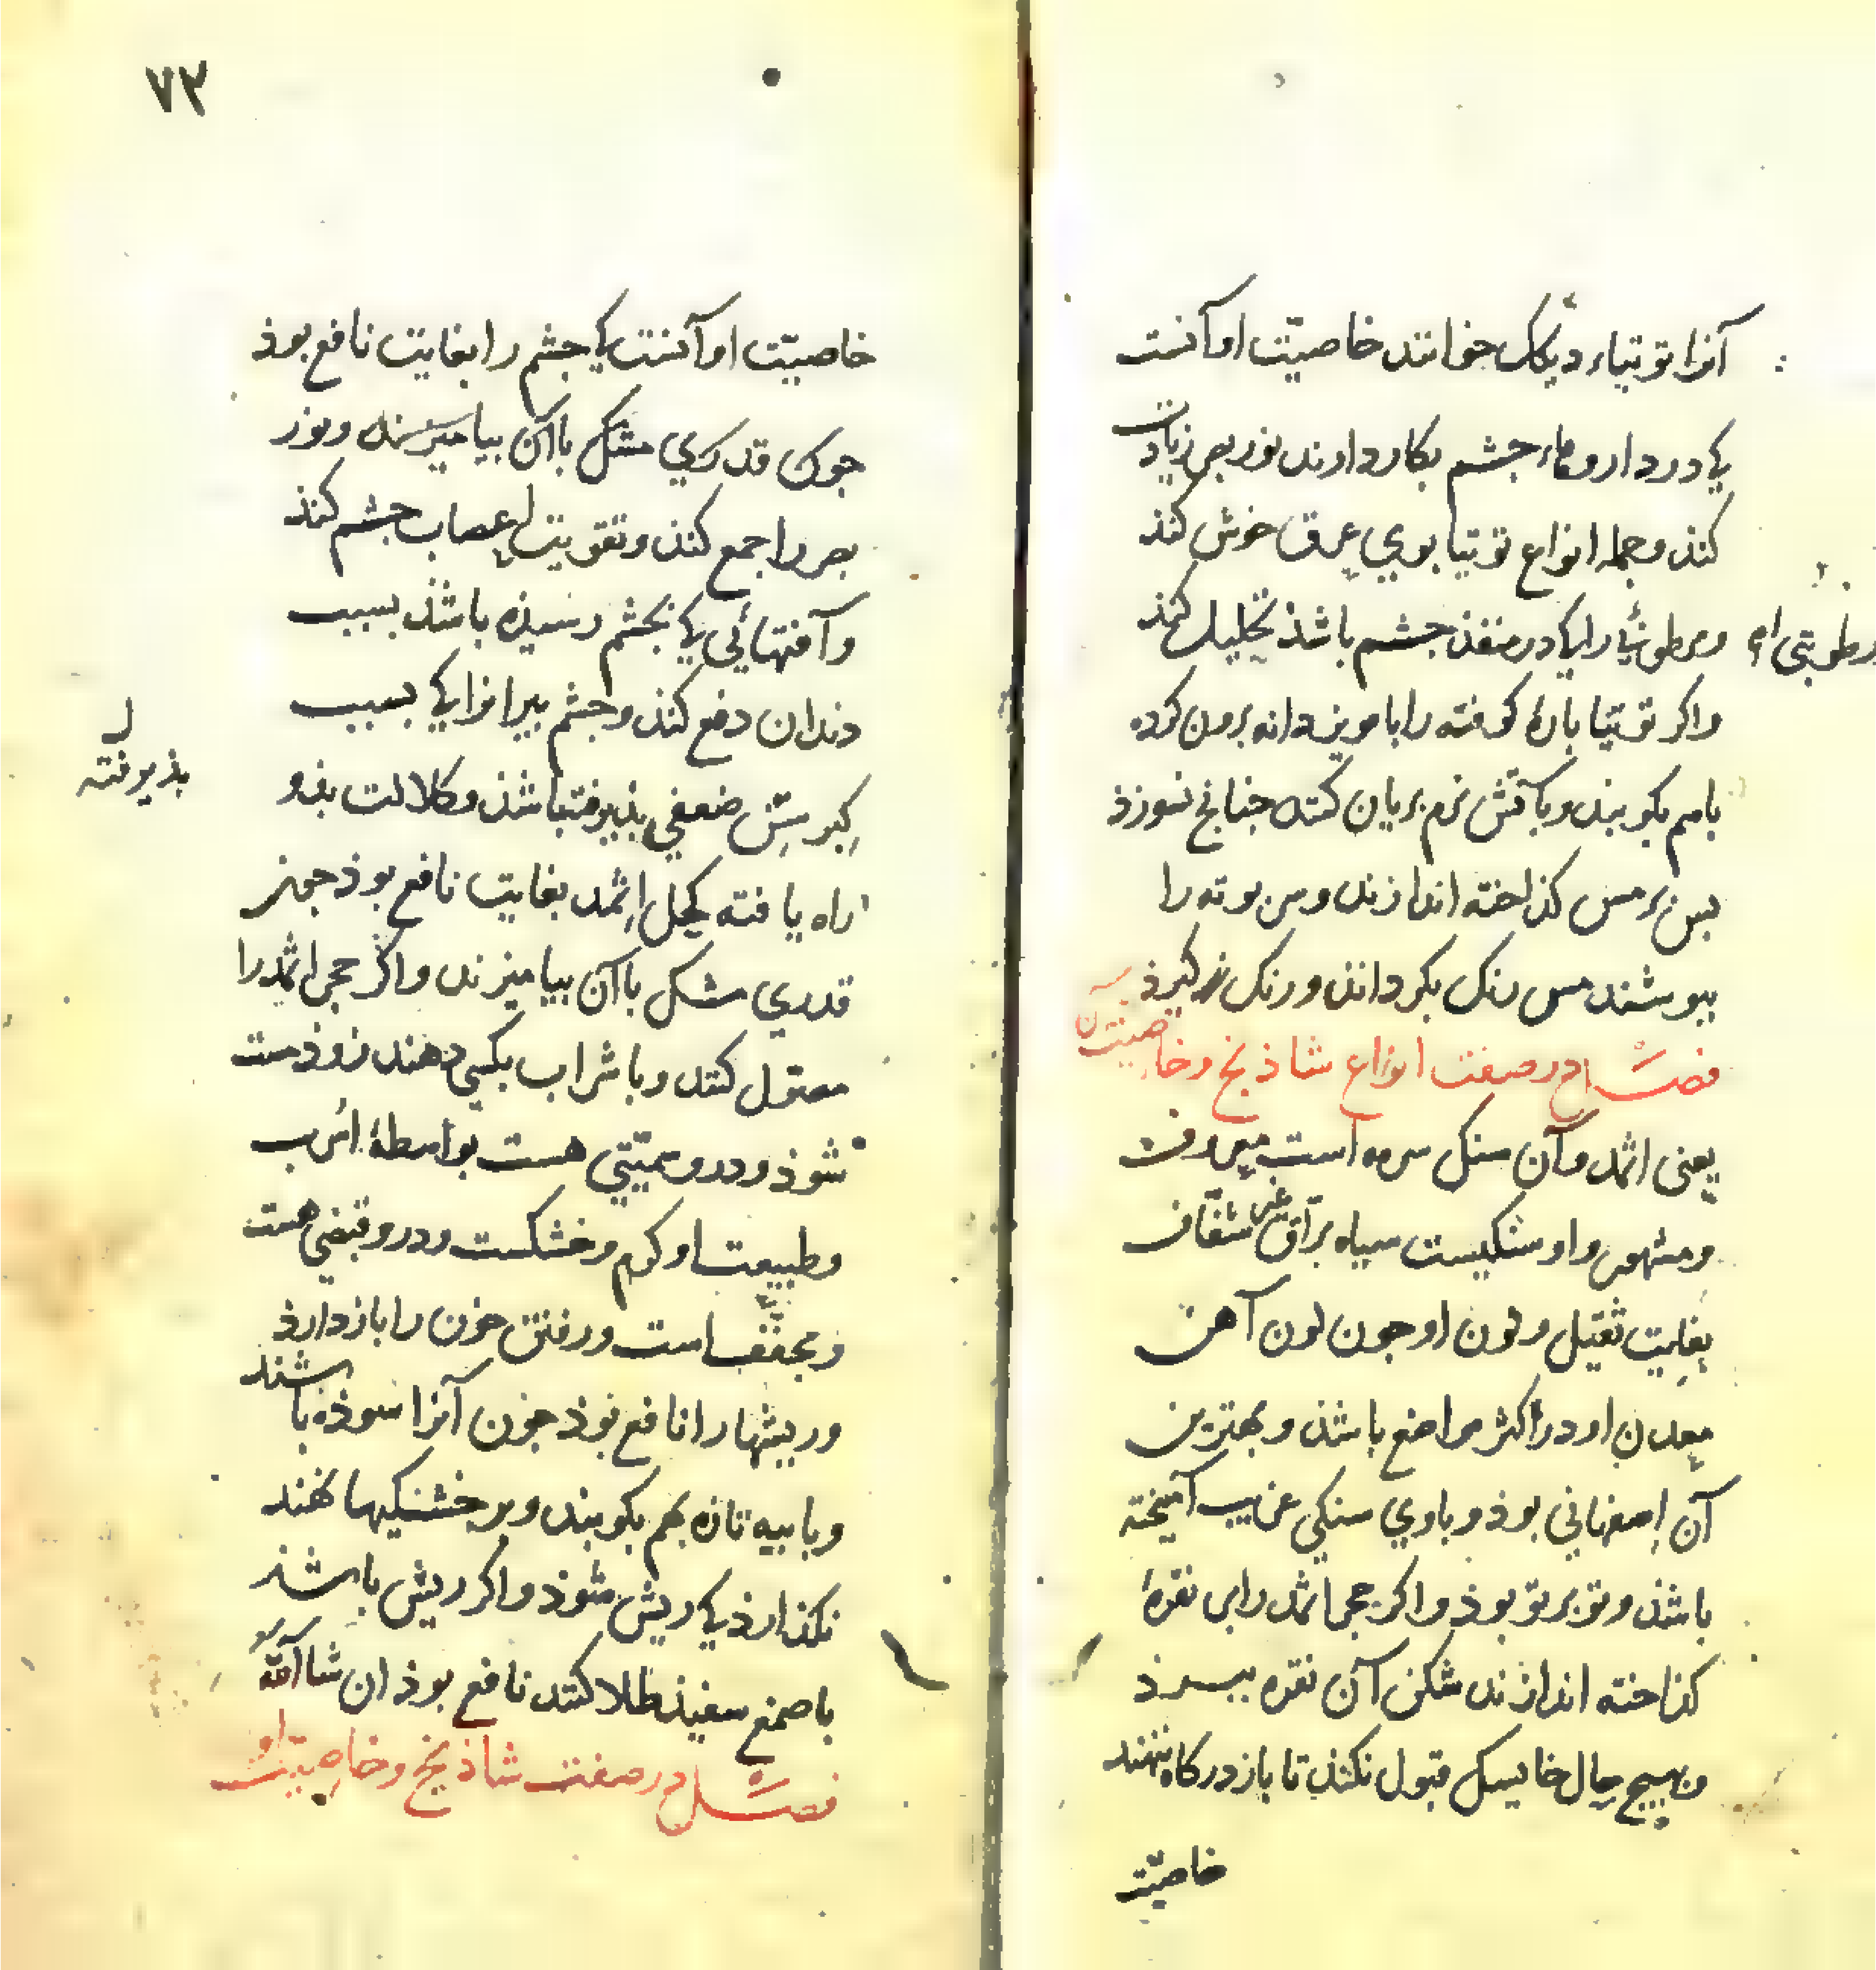 آنرا توتیاء دیکک خوانند خاصیّت او آنست
کی در داروهاء جشم بکار دارند نور بصر زیادت
کنذ و جمله انواع توتیا بوی عرق خوش کنذ
را کی در منفذ جشم باشذ تحلیل کنذ
رطوبتی
واکر توتیا باره کوفته را با مویز دانه برون کرده
باهم بکوبند و بآتش نرم بریان کنند جنانج نسوزذ
بس بر مس کذاخته اندازند و سر بوته را
ببوشند مس رنک بکرداند و رنک زر کیرذ
فصل در صفت انواع شاذنج و خاصیتش
یعنی اثمد و آن سنک سرمه است معروف
و مشهور و او سنکیست سیاه برّاق غیر شفّاف
بغایت ثقیل و لون او جون لون آهن
معدن او در اکثر مواضع باشذ و بهترین
آن اصفهانی بوذ و باوی سنکی غریب آمیخته
باشذ و تو بر تو بوذ و اکر حجر اثمد را بر نقرهٔ
کذاخته اندازند شکن آن نقره ببرذ
و بهیج حال خایسک قبول نکند تا باز در کاه ننهند
خاصیّت
۷۳
خاصیّت او آنست کی جشم را بغایت نافع بوذ
جون قدری مشک باآن بیامیزند و نور
بصر را جمع کند و تقویت اعصاب جشم کنذ
و آفتهائی کی بجشم رسیذه باشذ بسبب
دندان دفع کند و جشم بیرانرا کی بسبب
کبر سنّ ضعفی بذیرفته باشذ و کلالت بذو
بذیرفته
راه یافته کحل اثمد بغایت نافع بوذ جون
قدری مشک باآن بیامیزند و اکر حجر اثمد را
مصوّل کنند و با شراب بکسی دهند زوذ مست
شوذ و درو سمّیّتی هست بواسطهٔ اسرب
و طبیعت او کرم و خشکست و درو قبضی هست
و مجفّف است و رفتن خون را باز دارذ
و ریشها را نافع بوذ جون آنرا سوذه باشند
و با بیه تازه بهم بکوبند و بر خشکیها نهند
نکذارذ کی ریش شوذ و اکر ریش باشذ
با صمغ سفیذ طلا کنند نافع بوذ ان شا الله
فصل در صفت شاذنج و خاصیّت او